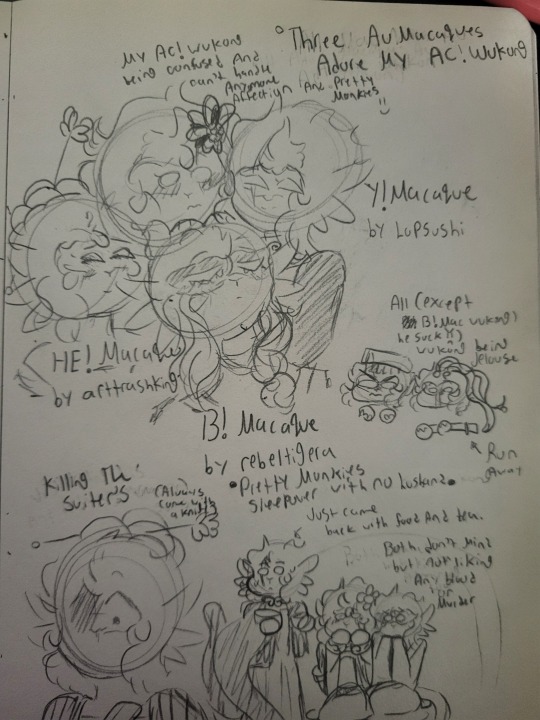 °Three Au!Macaques
Adore My AC!Wukong
My Ac! Wukong
being confused And
can't handle
Anymore
Affection And Pretty
Monkies
:)
Y!Macaque
by Lopsushi
All (except
B!Mac wukong)
he suck!)
wukong being
jelouse
HE! Macaque
by arttrashking
Run
Away
B! Macaque
by rebeltigera
•Pretty Munkies
Sleepover with no Lusband•
Killing The
Suiter's
(Always
come with
a knife
Just came
back with food And tea.
Both don't mind
but Not liking
Any blood
or
Murder